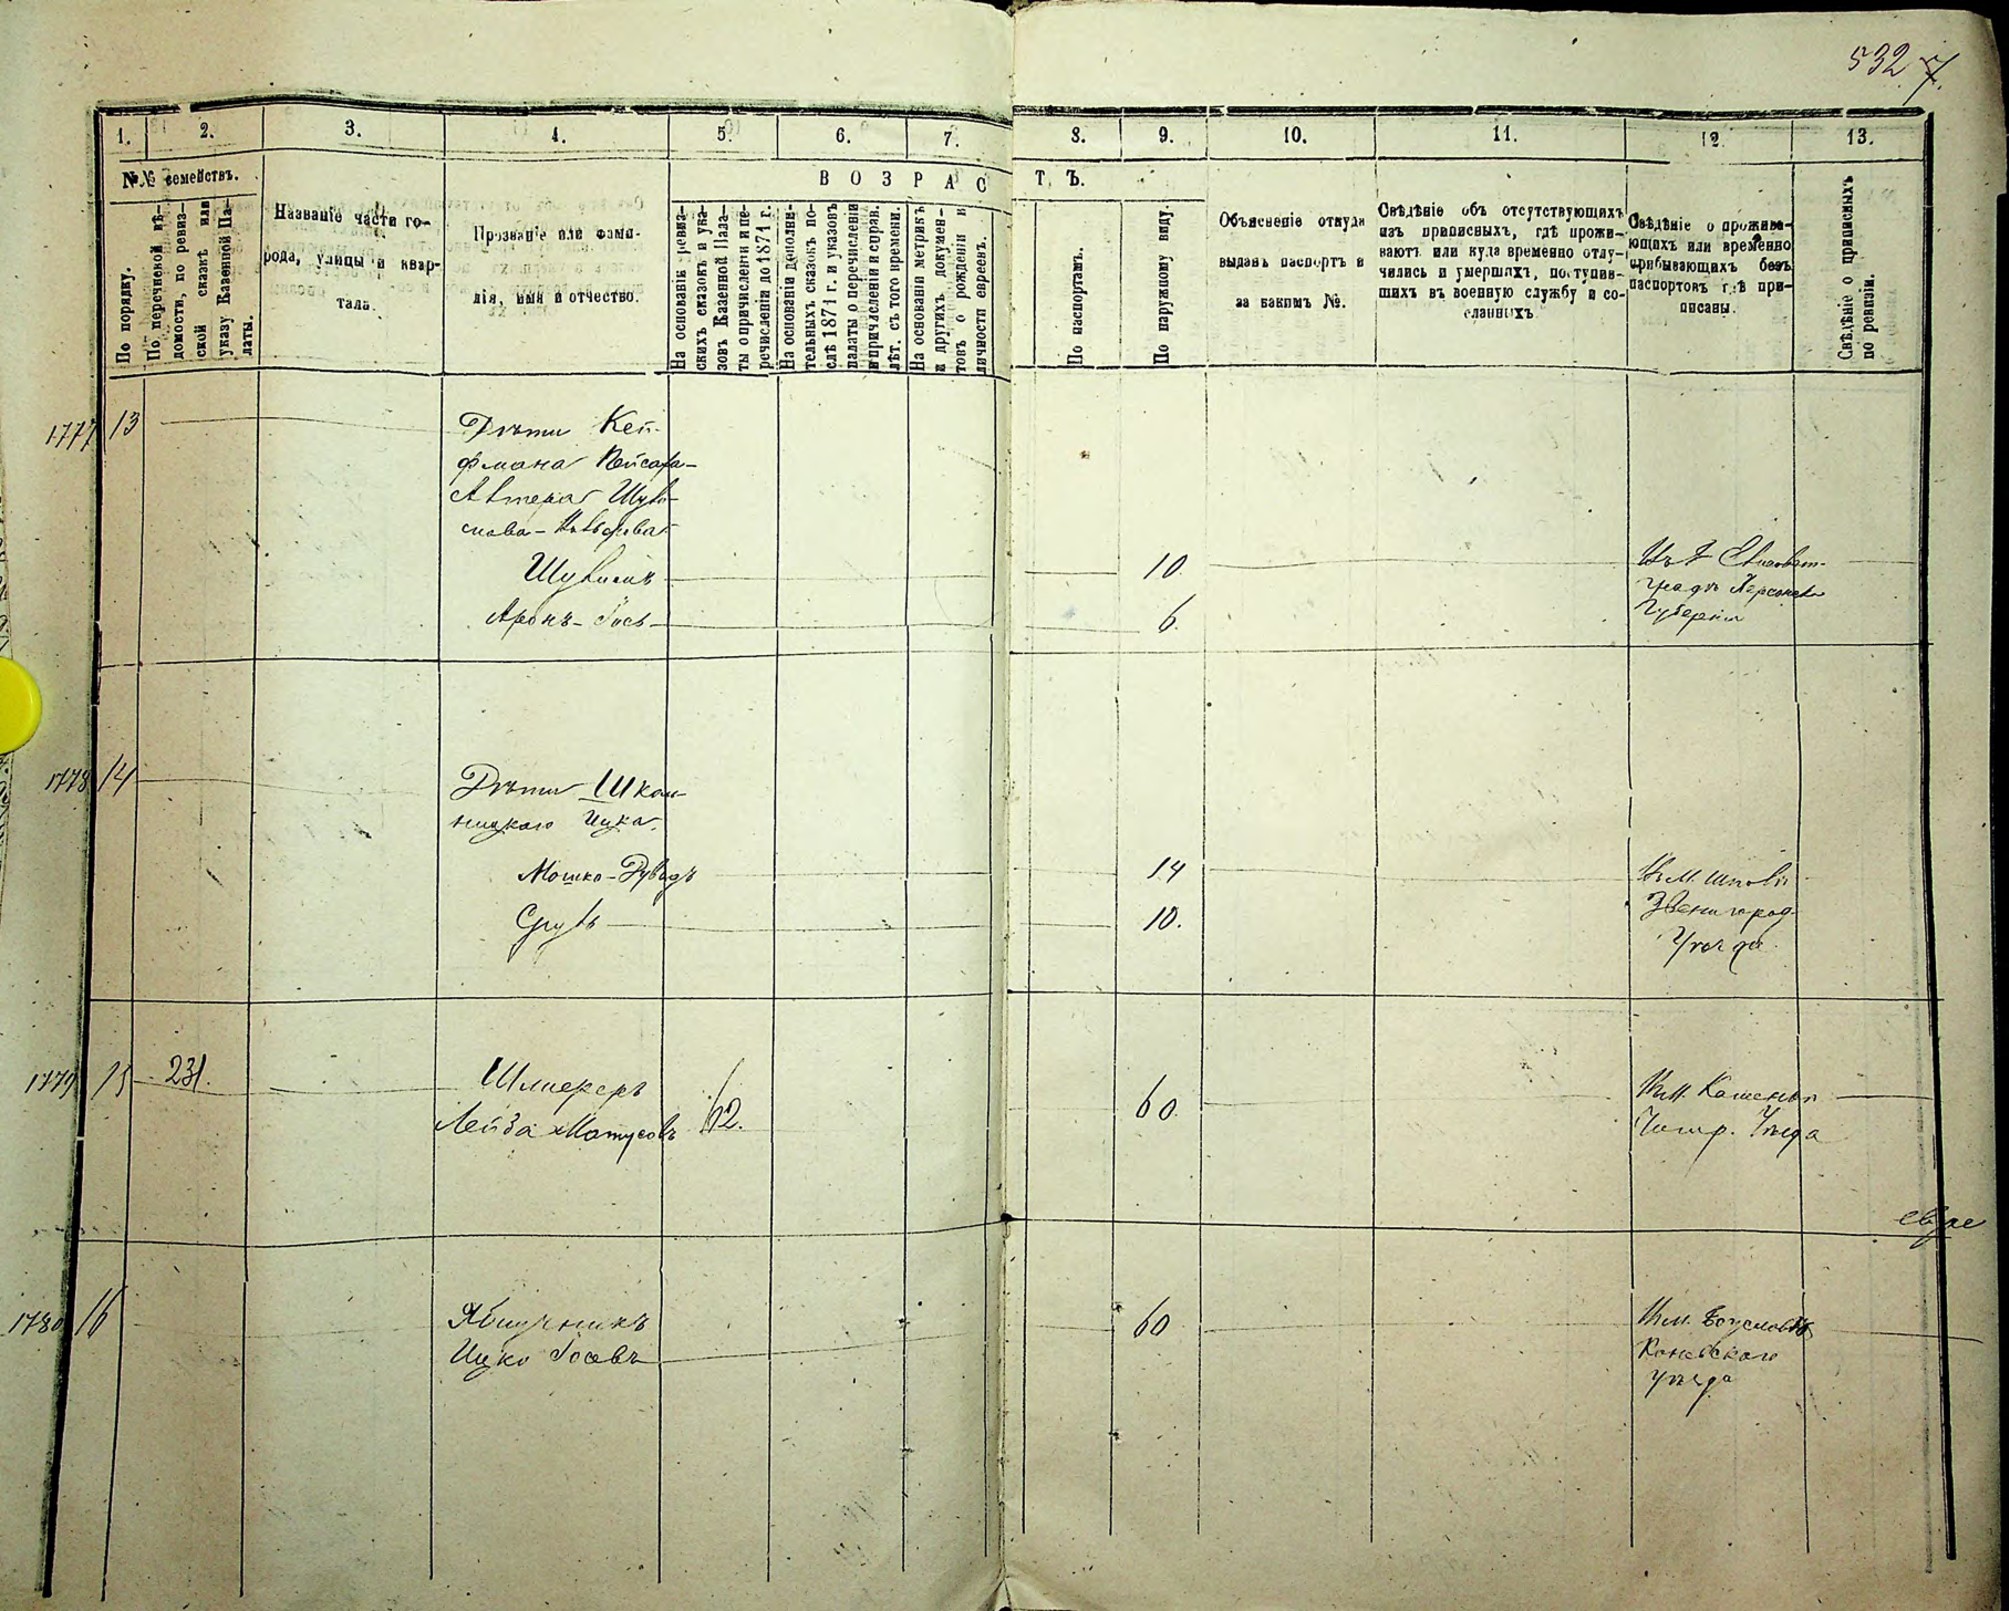 532 7.
1. 2. 3. 4. 5. 6. 7. 8. 9. 10. 11. 12. 13.
№№ семействъ.
В О З Р А С Т Ъ.
По порядку.
По перечневой вѣ-
домости, по ревиз-
ской сказкѣ или
указу Казенной Па-
латы.
Названіе части го-
рода, улицы и квар-
тала.
Прозваніе или фами-
лія, имя и отчество.
На основаніи ревиз-
скихъ сказокъ и ука-
зовъ Казенной Пала-
ты о причисленіи и пе-
речисленіи до 1871 г.
На основаніи дополни-
тельныхъ сказокъ по-
слѣ 1871 г. и указовъ
палаты о перечисленіи
и причисленіи и справ.
лѣт. съ того времени.
На основаніи метрикъ
и другихъ докумен-
товъ о рожденіи и
личности евреевъ.
По паспортамъ.
По наружному виду.
Объясненіе откуда
выданъ паспортъ и
за какимъ №.
Свѣдѣніе объ отсутствующихъ
изъ приписныхъ, гдѣ прожи-
ваютъ или куда временно отлу-
чились и умершихъ, поступив-
шихъ въ военную службу и со-
сланныхъ
Свѣдѣніе о прожива-
ющихъ или временно
прибывающихъ безъ
паспортовъ гдѣ при-
писаны.
Свѣдѣніе о приписныхъ
по ревизіи.
1777 13
Дѣти Кей-
фмана
Шулимъ 10.
Аронъ-Іось 6.
Елисавет-
градѣ Херсонской
Губерніи
1778 14
Дѣти Шкля-
ницкаго Ицка.
Мошко-Дувидъ 14
Сруль 10.
Въ М. Шполѣ
Звенигород.
Уѣзда
1779 15 231.
Шлиферъ
Лейба Матусовъ 62. 60.
Въ М.
Чигир. Уѣзда
1780 16
Ябличникъ
Ицко Іосевъ 60
Въ м. Богуславѣ
Каневскаго
уѣзда